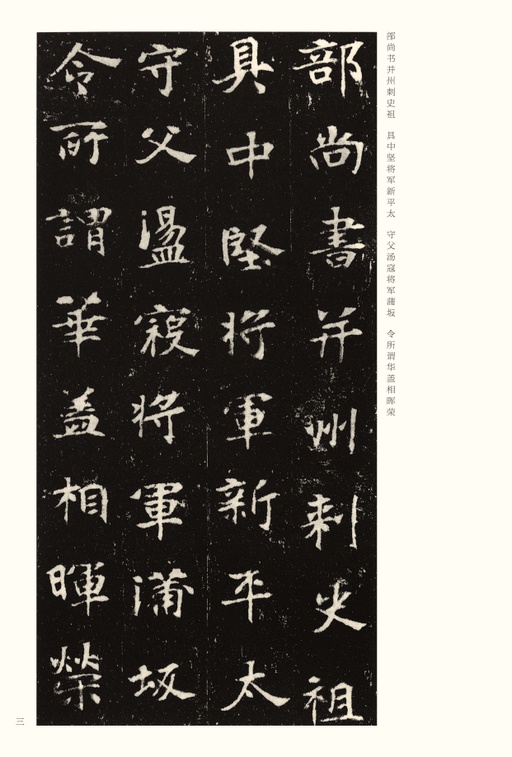 部尚书并州刺史祖　具中坚将军新平太　守父汤寇将军蒲坂　令所谓华盖相晖荣
部尚書并州刺史祖
具中堅將軍新平太
守父盪寇將軍蒲坂
令所謂華盖相暉榮
三